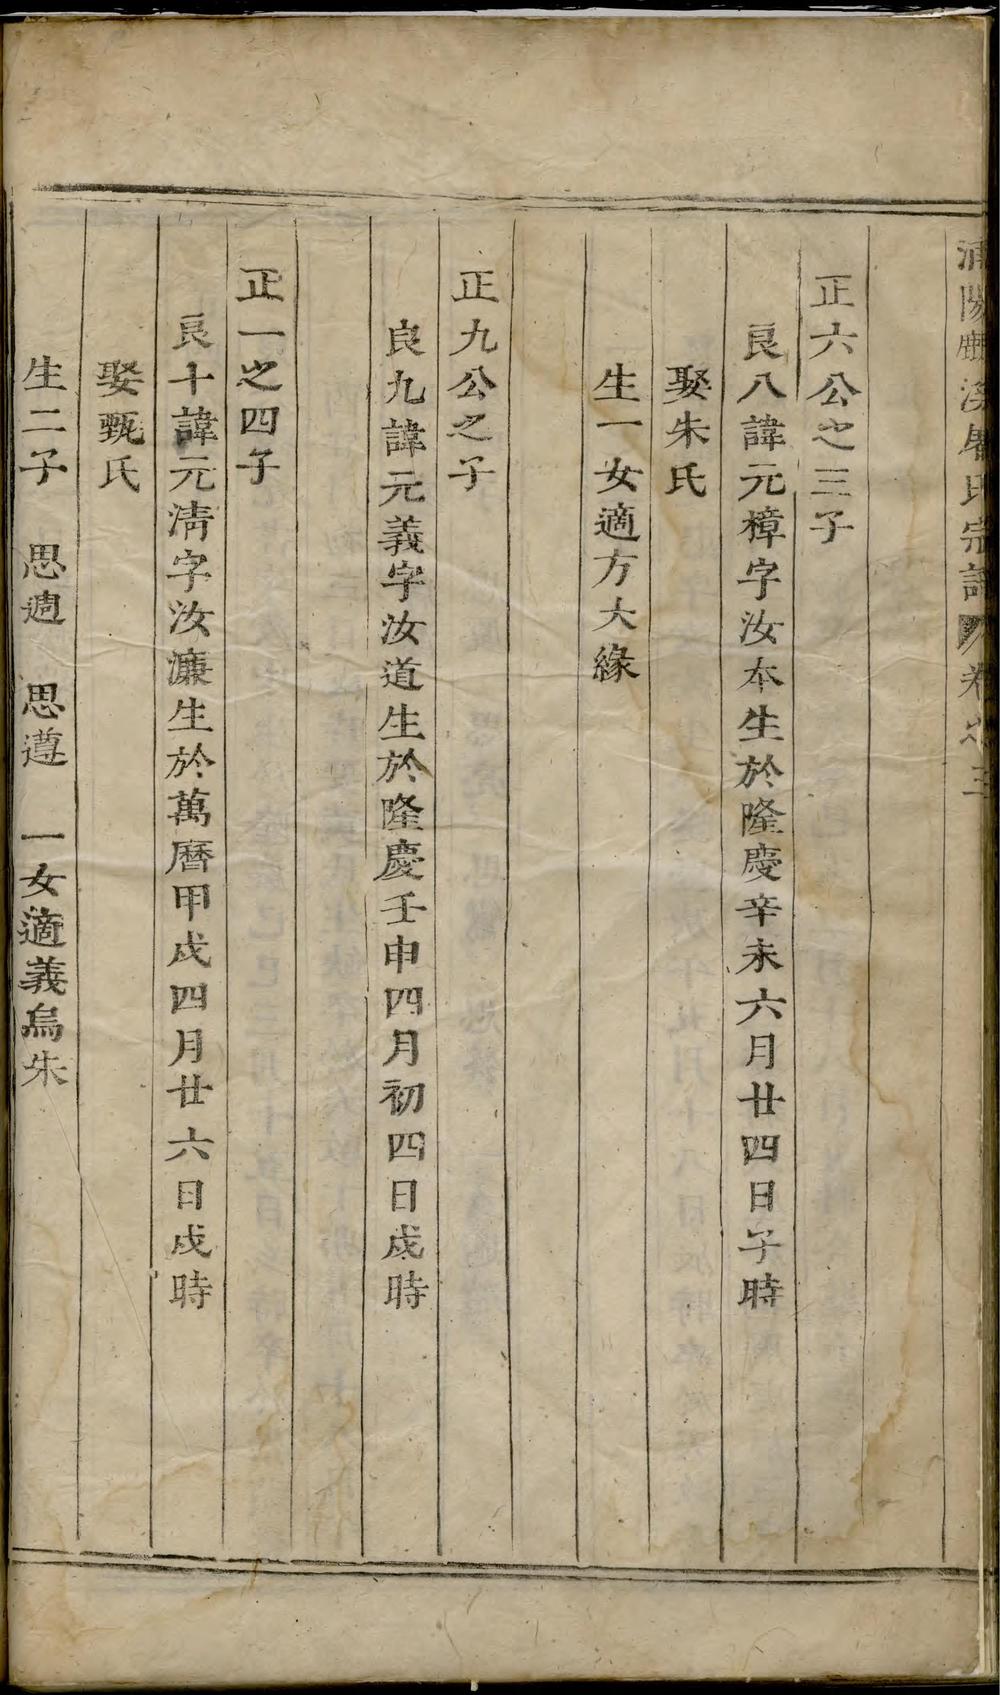 浦陽鹿溪周氏宗譜 卷之三
正六公之三子
良八諱元樟字汝本生於隆慶辛未六月廿四日子時
娶朱氏
生一女適方大緣
正九公之子
良九諱元義字汝道生於隆慶壬申四月初四日戌時
正一之四子
良十諱元清字汝濂生於萬曆甲戌四月廿六日戌時
娶甄氏
生二子 思週 思遵 一女適義烏朱